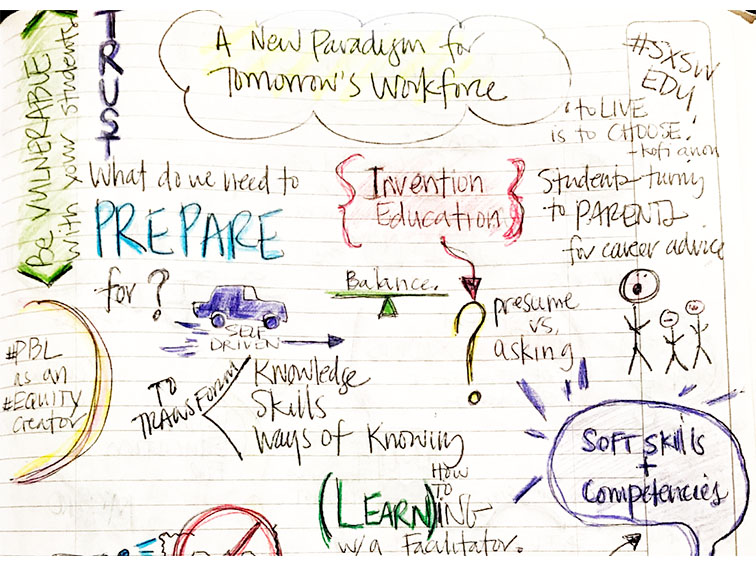 Be VULNERABLE
with your students
TRUST
A New Paradigm for
Tomorrow's Workforce
#SXSW
EDU
"to LIVE
is to CHOOSE.
- kofi anon
What do we need to
PREPARE
for?
{Invention
Education}
Students turning
to PARENTS
for career advice
Balance.
SELF
DRIVEN
?
presume
vs.
asking
#PBL
as an
#EQUITY
creator
TO
TRANSFORM
Knowledge
Skills
Ways of Knowing
SOFT SKILLS
+
Competencies
HOW
TO
(LEARN)ING
w/a Facilitator.